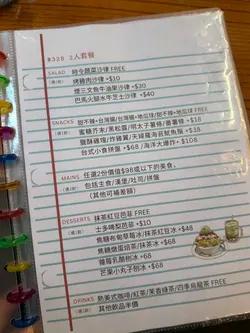 $328 2人套餐
SALAD 時令蔬菜沙律 FREE
(選1款) 烤雞肉沙律 +$10
煙三文魚牛油果沙律 +$20
巴馬火腿水牛芝士沙律 +$40
SNACKS 甜不辣+台灣腸/台灣腸+地瓜球/甜不辣+地瓜球 FREE
(選1款) 蜜糖芥末/黑松露/明太子薯條/番薯條 +$18
鹽酥雞塊/炸雞翼/天婦羅海苔魷魚鬚 +$38
台式小食拼盤 +$68 / 海洋大爆炸 +$108
MAINS 任選2份價值$98或以下的美食,
包括主食/漢堡/吐司/拼盤
(其他可補差額)
DESSERTS 抹茶紅豆芭菲 FREE
(選1款) 士多啤梨芭菲 +$10
焦糖布甸草莓冰/抹茶紅豆冰 +$48
焦糖燉蛋焙茶/抹茶冰 +$68
雜莓乳酪刨冰 +$68
芒果小丸子刨冰 +$68
DRINKS 熱美式咖啡/紅茶/茉香綠茶/四季烏龍茶 FREE
(選2款) 其他飲品半價